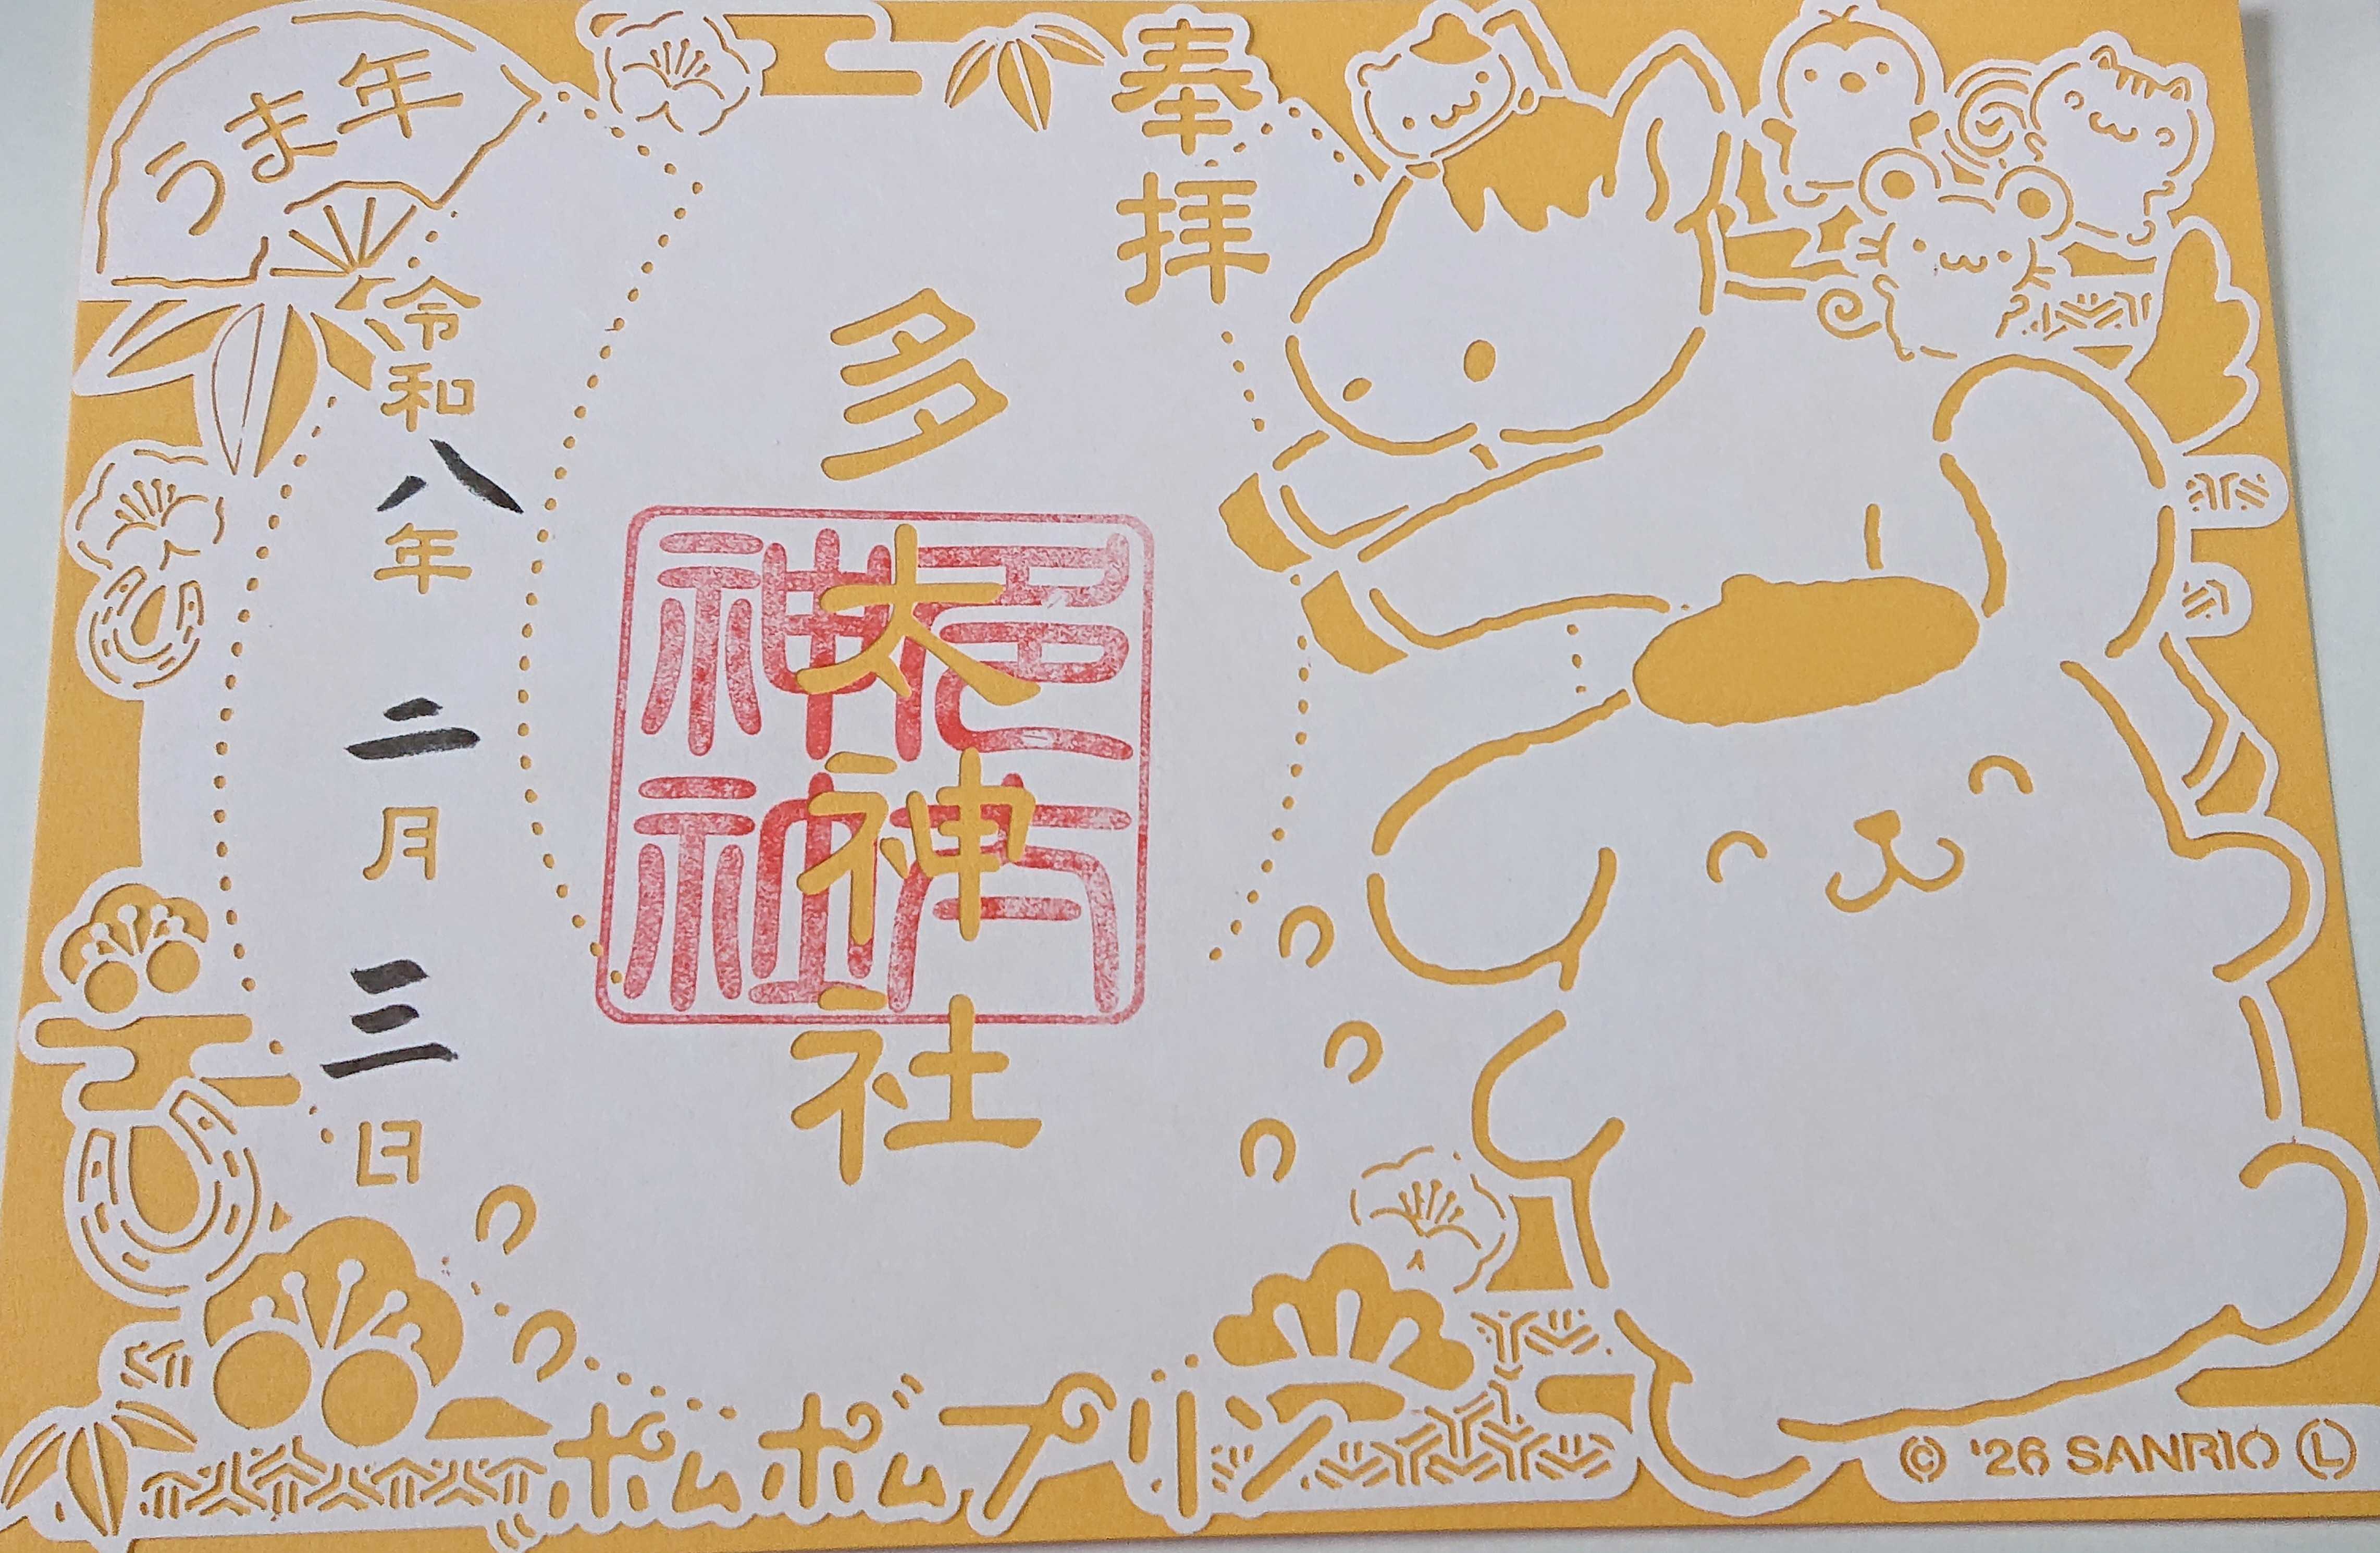 奉拝
多太神社
令和八年 二月 三日
うま年
ポムポムプリン
© '26 SANRIO Ⓛ